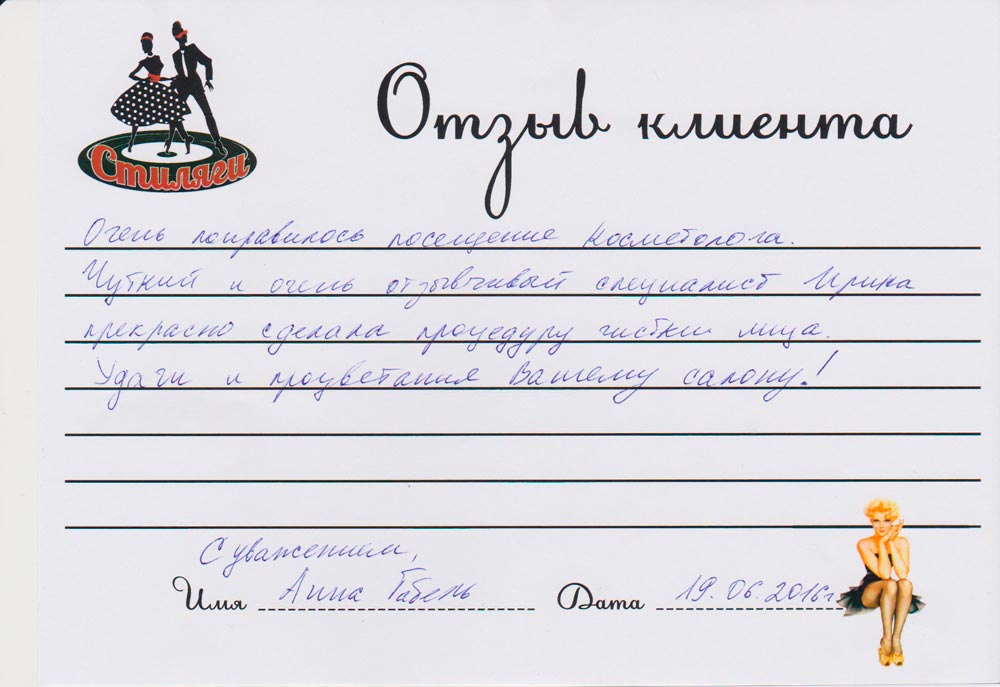 Стиляги
Отзыв клиента
Очень понравилось посещение косметолога.
Чуткий и очень отзывчивый специалист Ирина
прекрасно сделала процедуру чистки лица.
Удачи и процветания Вашему салону!
С уважением,
Имя Анна Габень Дата 19.06.2016г